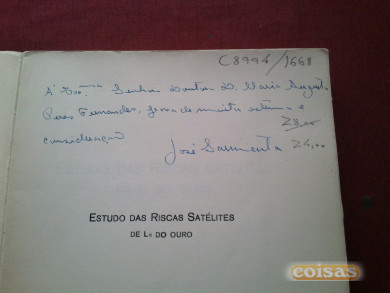 C8994/1661
À Exc.ma Senhora Doutora D. Maria Augusta
Peres Fernandes, prova de muita estima e
consideração
José Sarmento 24,00
ESTUDO DAS RISCAS SATÉLITES
DE Lα DO OURO
coisas